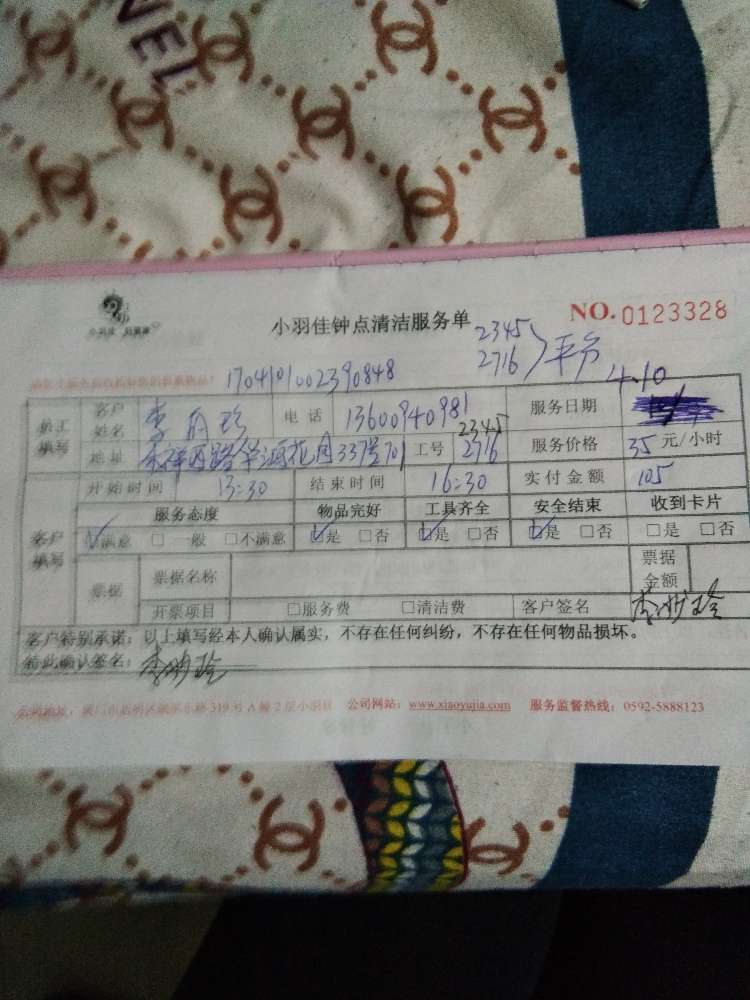 NEL
小羽佳钟点清洁服务单
NO.0123328
2345
2716 平台
1704101002390848
4.10
员工填写
客户姓名 电话 13600940981 服务日期
2345
地址 337号701 工号 2716 服务价格 35 元/小时
客户填写
开始时间 13:30 结束时间 16:30 实付金额 105
服务态度 物品完好 工具齐全 安全结束 收到卡片
满意 □一般 □不满意 是 □否 是 □否 是 □否 □是 □否
票据 票据名称 票据金额
开票项目 □服务费 □清洁费 客户签名
客户特别承诺：以上填写经本人确认属实，不存在任何纠纷，不存在任何物品损坏。
特此确认签名：
319号A幢2层小羽佳 公司网站：www.xiaoyujia.com 服务监督热线：0592-5888123